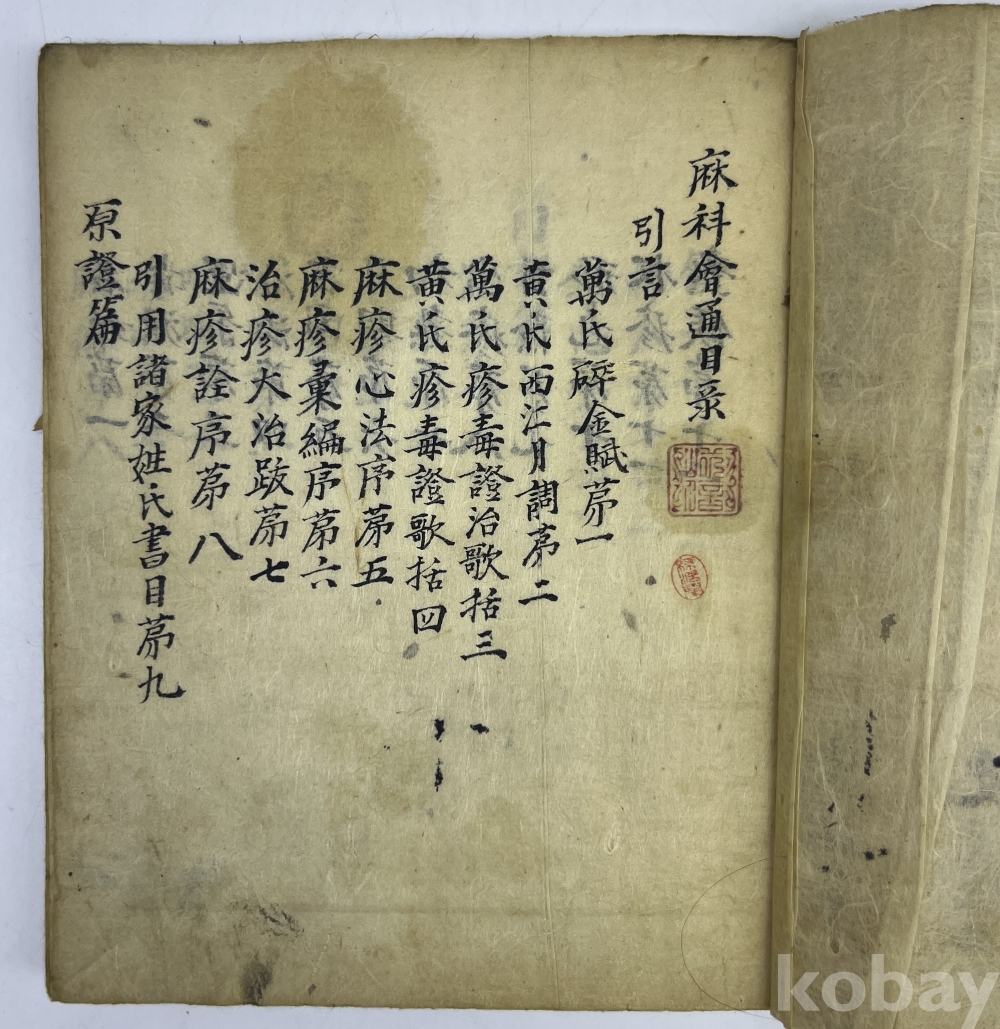 麻科會通目彔
引言
萬氏碎金賦苐一
黄氏西江月調苐二
萬氏疹毒證治歌括三
黄氏疹毒證歌括四
麻疹心法序苐五
麻疹彙編序苐六
治疹大治跋苐七
麻疹詮序苐八
引用諸家姓氏書目苐九
原證篇
kobay